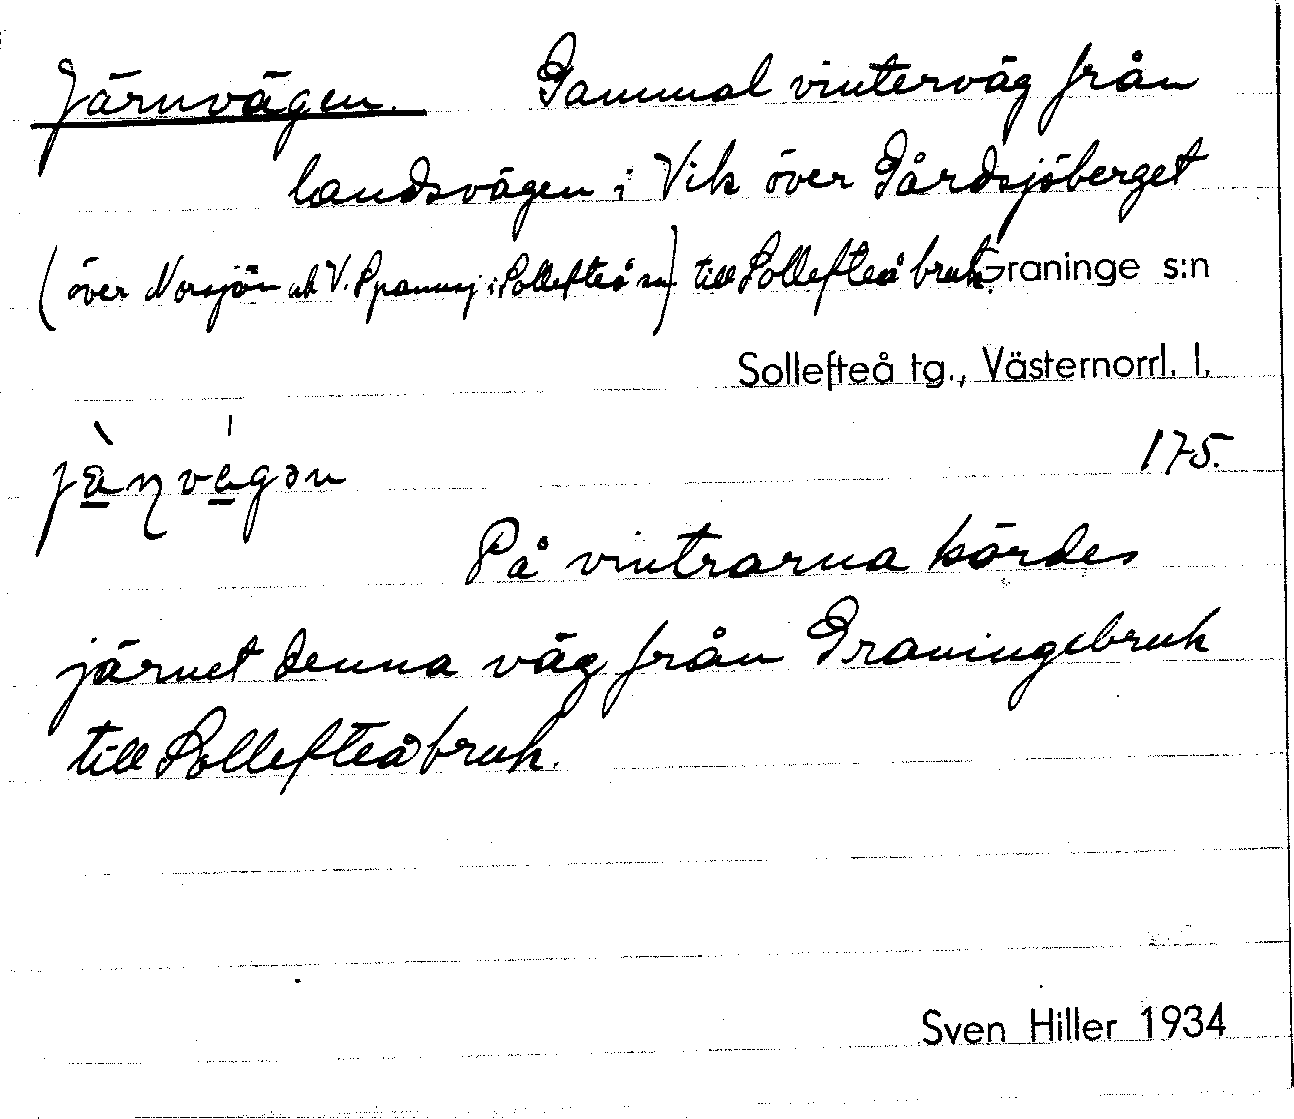 Järnvägen. Gammal vinterväg från
landsvägen i Vik över Gårdsjöberget
(över Norsjön och V. Spannsj i Sollefteå sn) till Sollefteå bruk. Graninge s:n
Sollefteå tg., Västernorrl. l.
jä̀ɳvá̱gən 175.
På vintrarna kördes
järnet denna väg från Graningebruk
till Sollefteåbruk.
Sven Hiller 1934